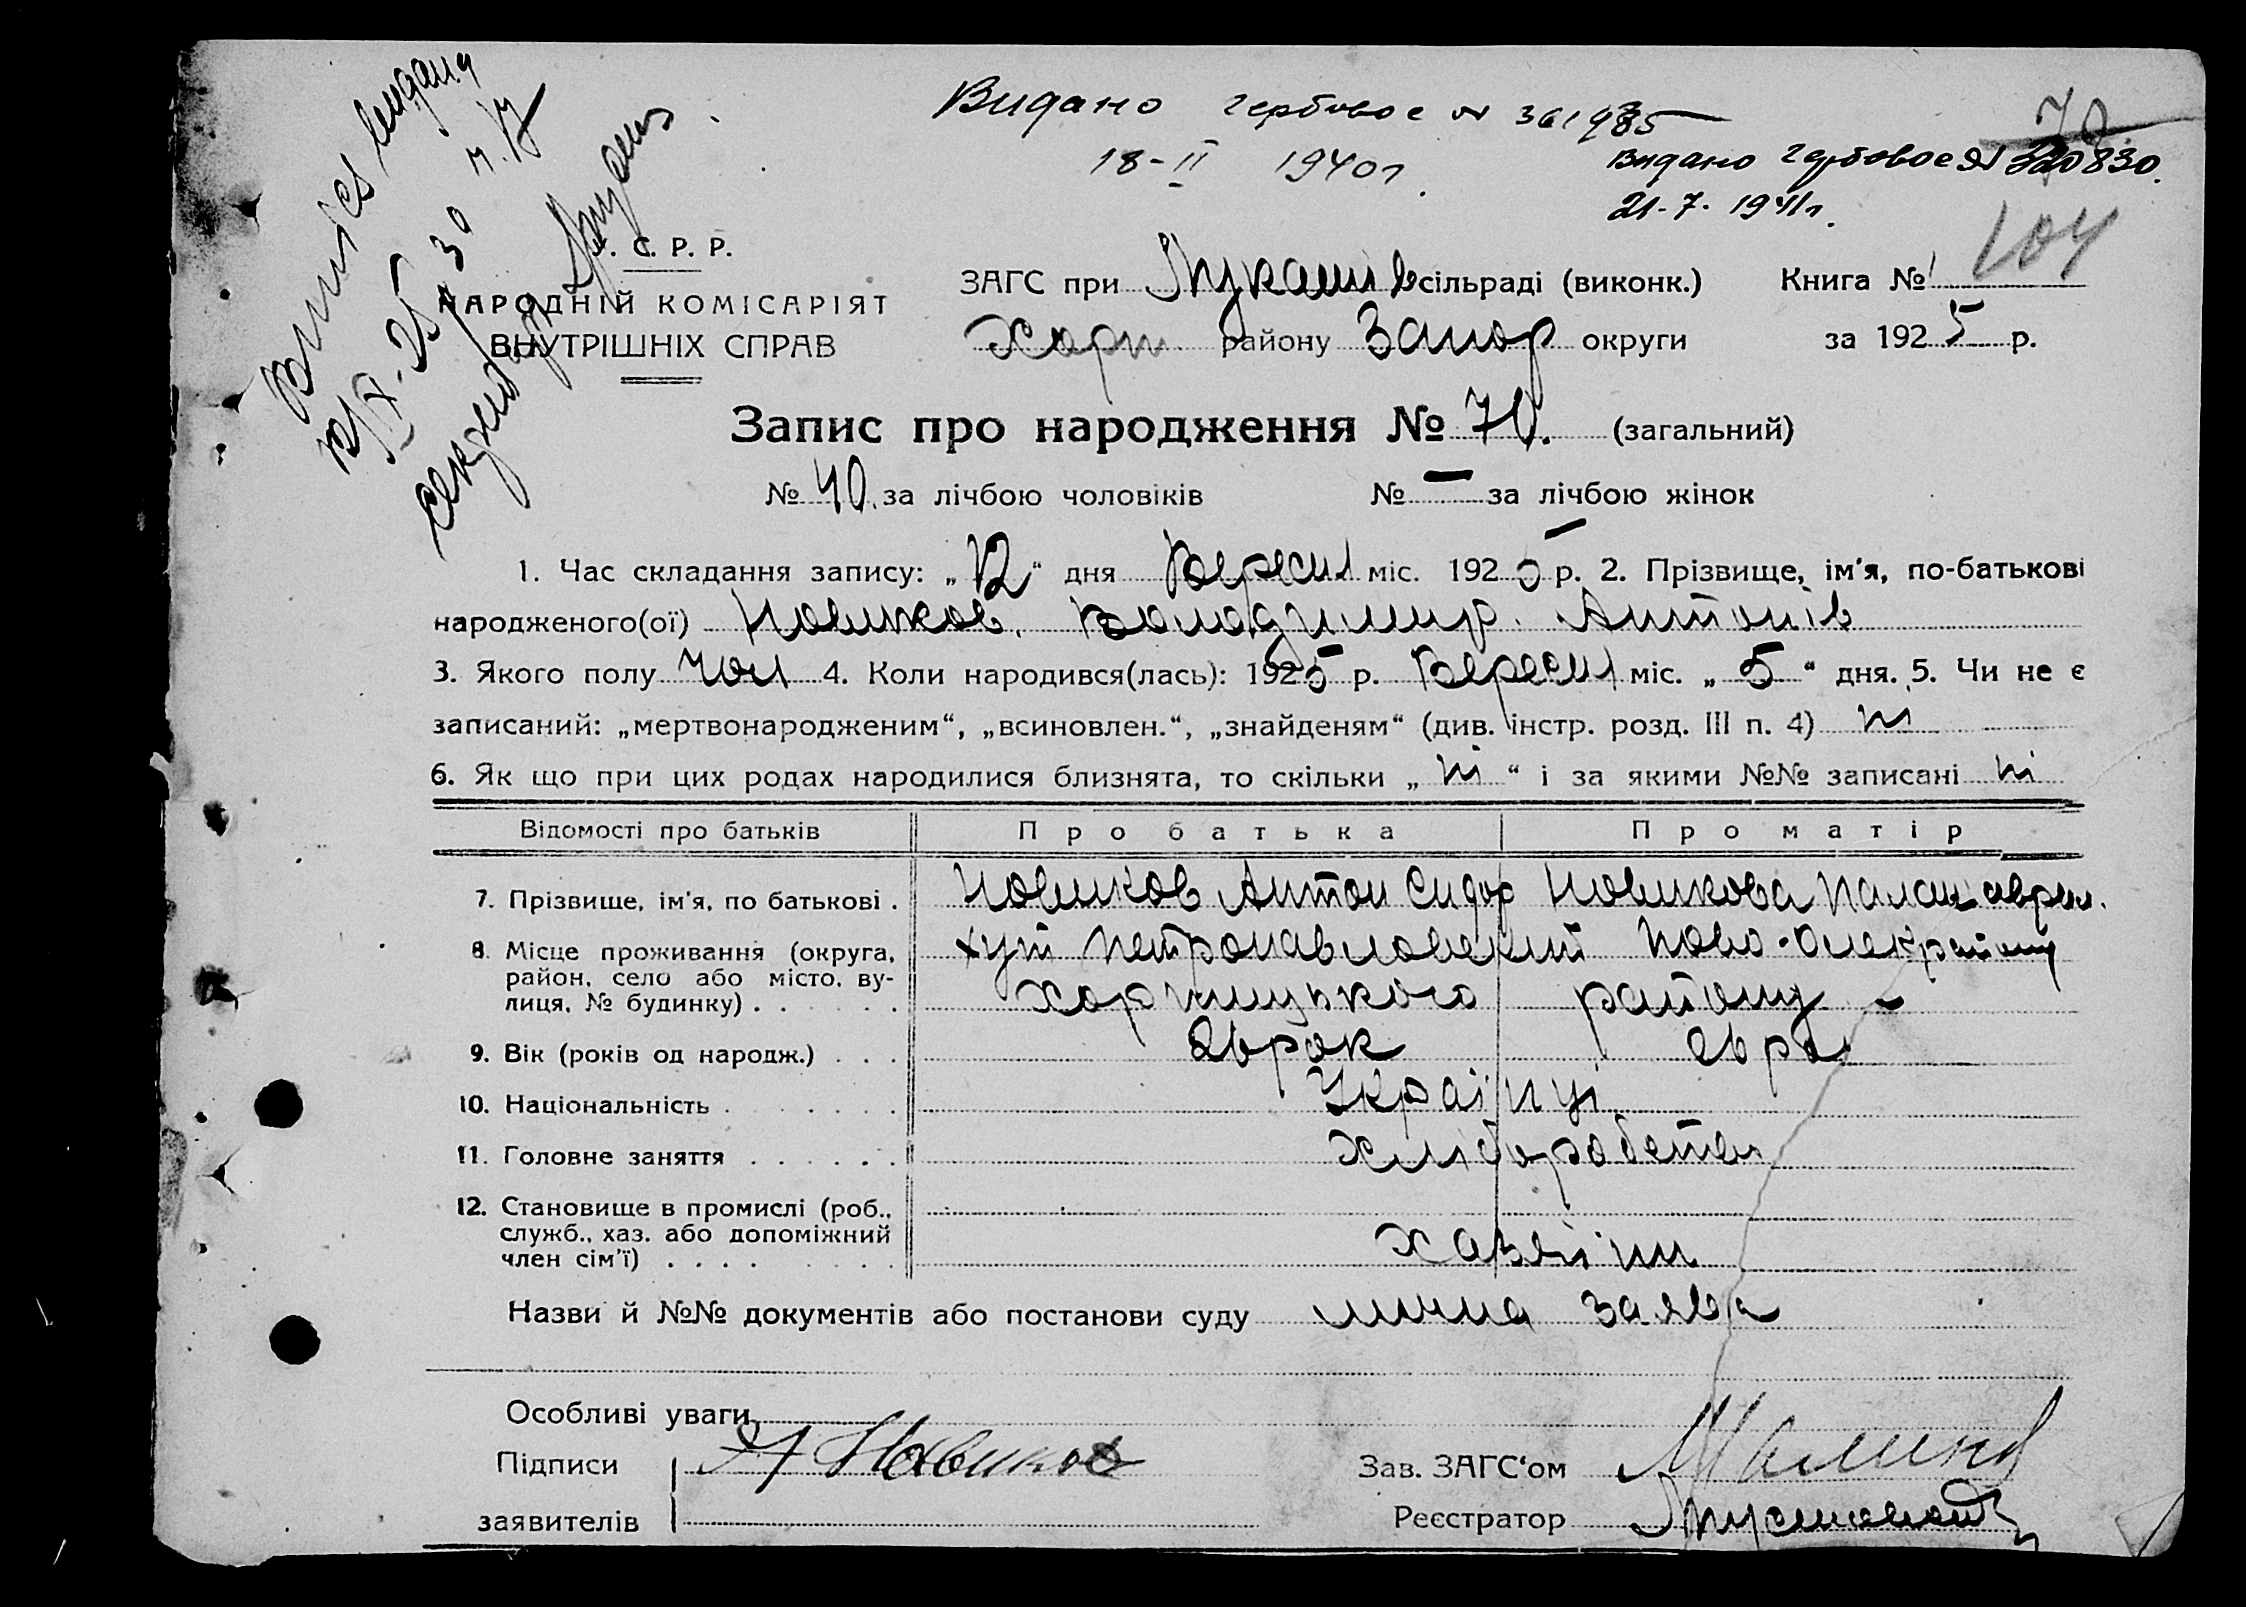 Видано гербовое № 361985
18-II 1940 г.
Видано гербовое № 320830.
21-7-1941 г.
70
104
У. С. Р. Р.
НАРОДНІЙ КОМІСАРІЯТ
ВНУТРІШНІХ СПРАВ
ЗАГС при Лукашів сільраді (виконк.) Книга №
Хорт району Запор округи за 1925 р.
Запис про народження № 70. (загальний)
№ 40. за лічбою чоловіків № — за лічбою жінок
1. Час складання запису: „12“ дня Вересня міс. 1925 р. 2. Прізвище, ім'я, по-батькові
народженого(ої) Новиков, Володимир Антонів
3. Якого полу чол 4. Коли народився(лась): 1925 р. Вересня міс. „5“ дня. 5. Чи не є
записаний: „мертвонародженим“, „всиновлен.“, „знайденям“ (див. інстр. розд. III п. 4) ні
6. Як що при цих родах народилися близнята, то скільки „ ні “ і за якими №№ записані ні
Відомості про батьків Про батька Про матір
7. Прізвище, ім'я, по батькові . Новиков Антон Сидор Новикова
8. Місце проживання (округа, хут Петропавловский Ново-Олек району
район, село або місто, ву-
лиця, № будинку) . . . . . Хортицького району
9. Вік (років од народж.) . . .
10. Національність . . . . . . Українці
11. Головне заняття . . . . . . Хлібороб
12. Становище в промислі (роб.,
служб., хаз. або допоміжний
член сім'ї) . . . . Хазяїни
Назви й №№ документів або постанови суду лична заява
Особливі уваги
Підписи А Новиков
заявителів
Зав. ЗАГС‘ом
Реєстратор